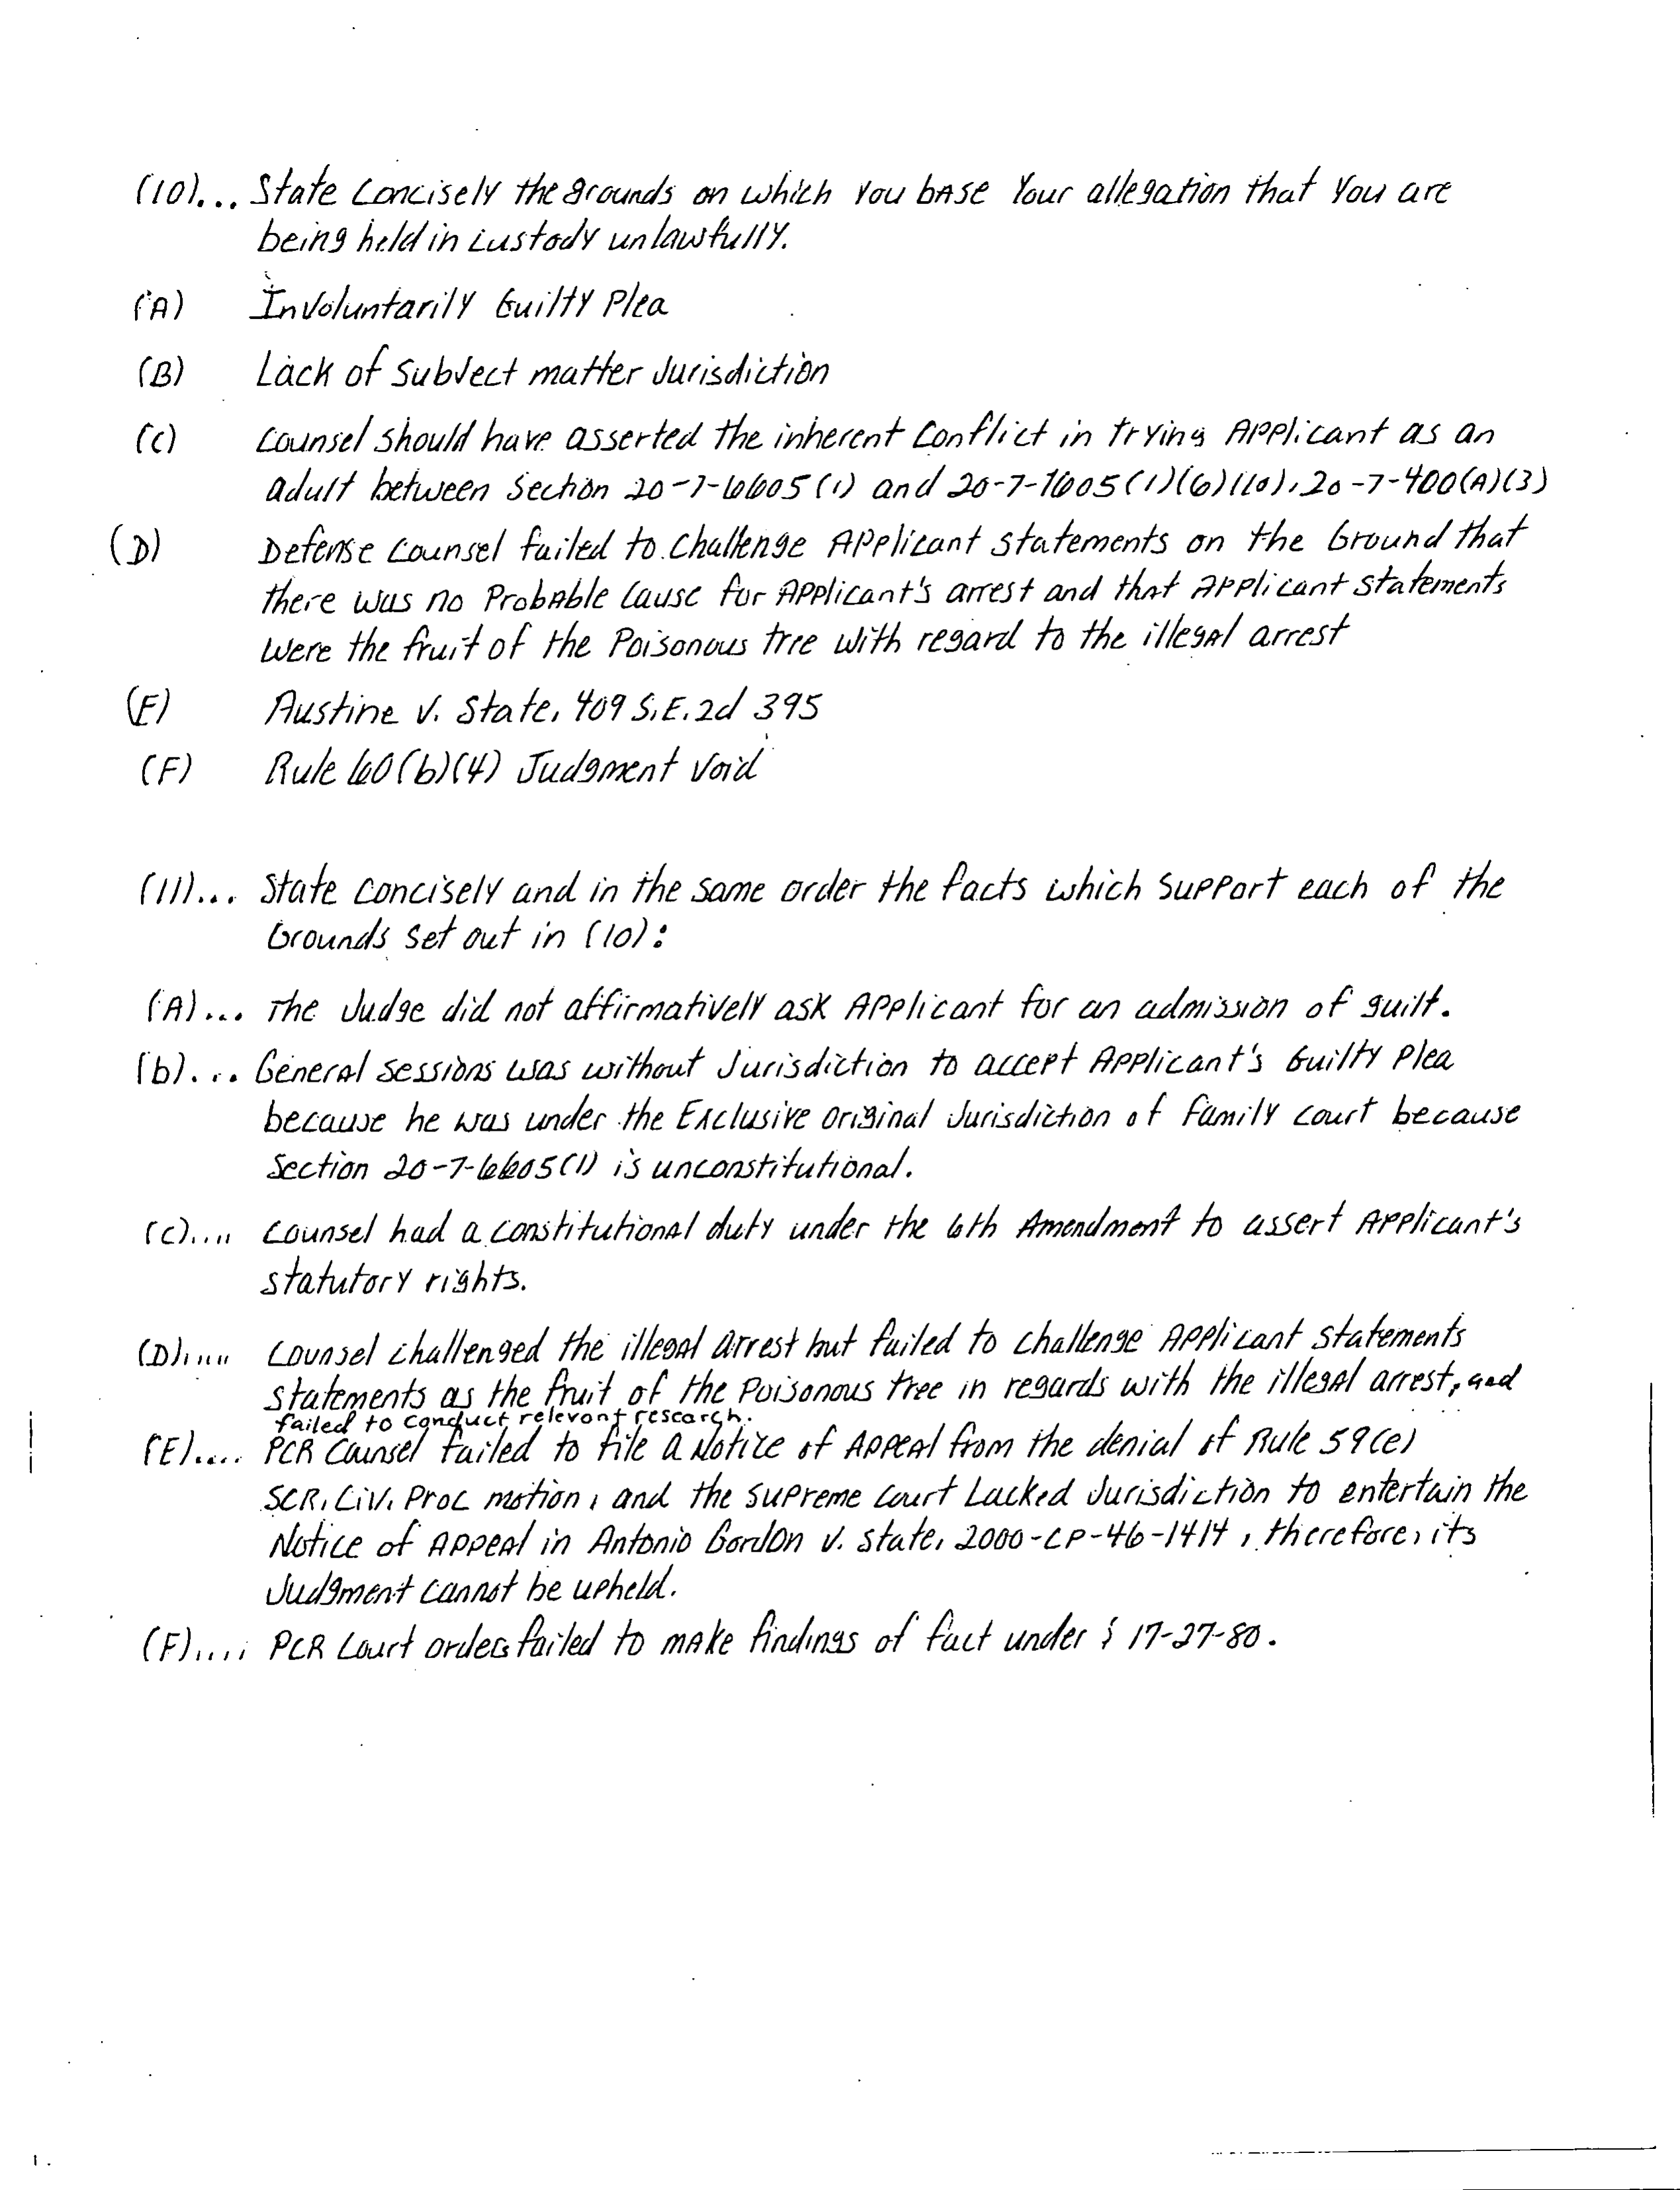 (10)... State Concisely the grounds on which you base Your allegation that You are
being held in Custody unlawfully.
(A) Involuntarily Guilty Plea
(B) Lack of Subject matter Jurisdiction
(C) Counsel should have asserted the inherent Conflict in trying Applicant as an
adult between Section 20-7-6605(1) and 20-7-7605(1)(6)(10), 20-7-400(A)(3)
(D) Defense Counsel failed to challenge Applicant statements on the Ground that
there was no Probable Cause for Applicant's arrest and that Applicant statements
Were the fruit of the Poisonous tree with regard to the illegal arrest
(E) Austine v. State, 409 S.E.2d 395
(F) Rule 60(b)(4) Judgment Void
(11)... State Concisely and in the same order the facts which support each of the
Grounds set out in (10):
(A)... The Judge did not affirmatively ask Applicant for an admission of guilt.
(b)... General Sessions was without Jurisdiction to accept Applicant's Guilty Plea
because he was under the Exclusive original Jurisdiction of family court because
Section 20-7-6605(1) is unconstitutional.
(C).... Counsel had a constitutional duty under the 6th Amendment to assert Applicant's
statutory rights.
(D)..... Counsel challenged the illegal arrest but failed to challenge Applicant statements
statements as the fruit of the Poisonous tree in regards with the illegal arrest, and
failed to conduct relevant research.
(E).... PCR Counsel failed to file a Notice of Appeal from the denial of Rule 59(e)
SCR, Civ, Proc motion, and the Supreme Court Lacked Jurisdiction to entertain the
Notice of Appeal in Antonio Gordon v. State, 2000-CP-46-1414, therefore, its
Judgment cannot be upheld.
(F)..... PCR Court orders failed to make findings of fact under § 17-27-80.